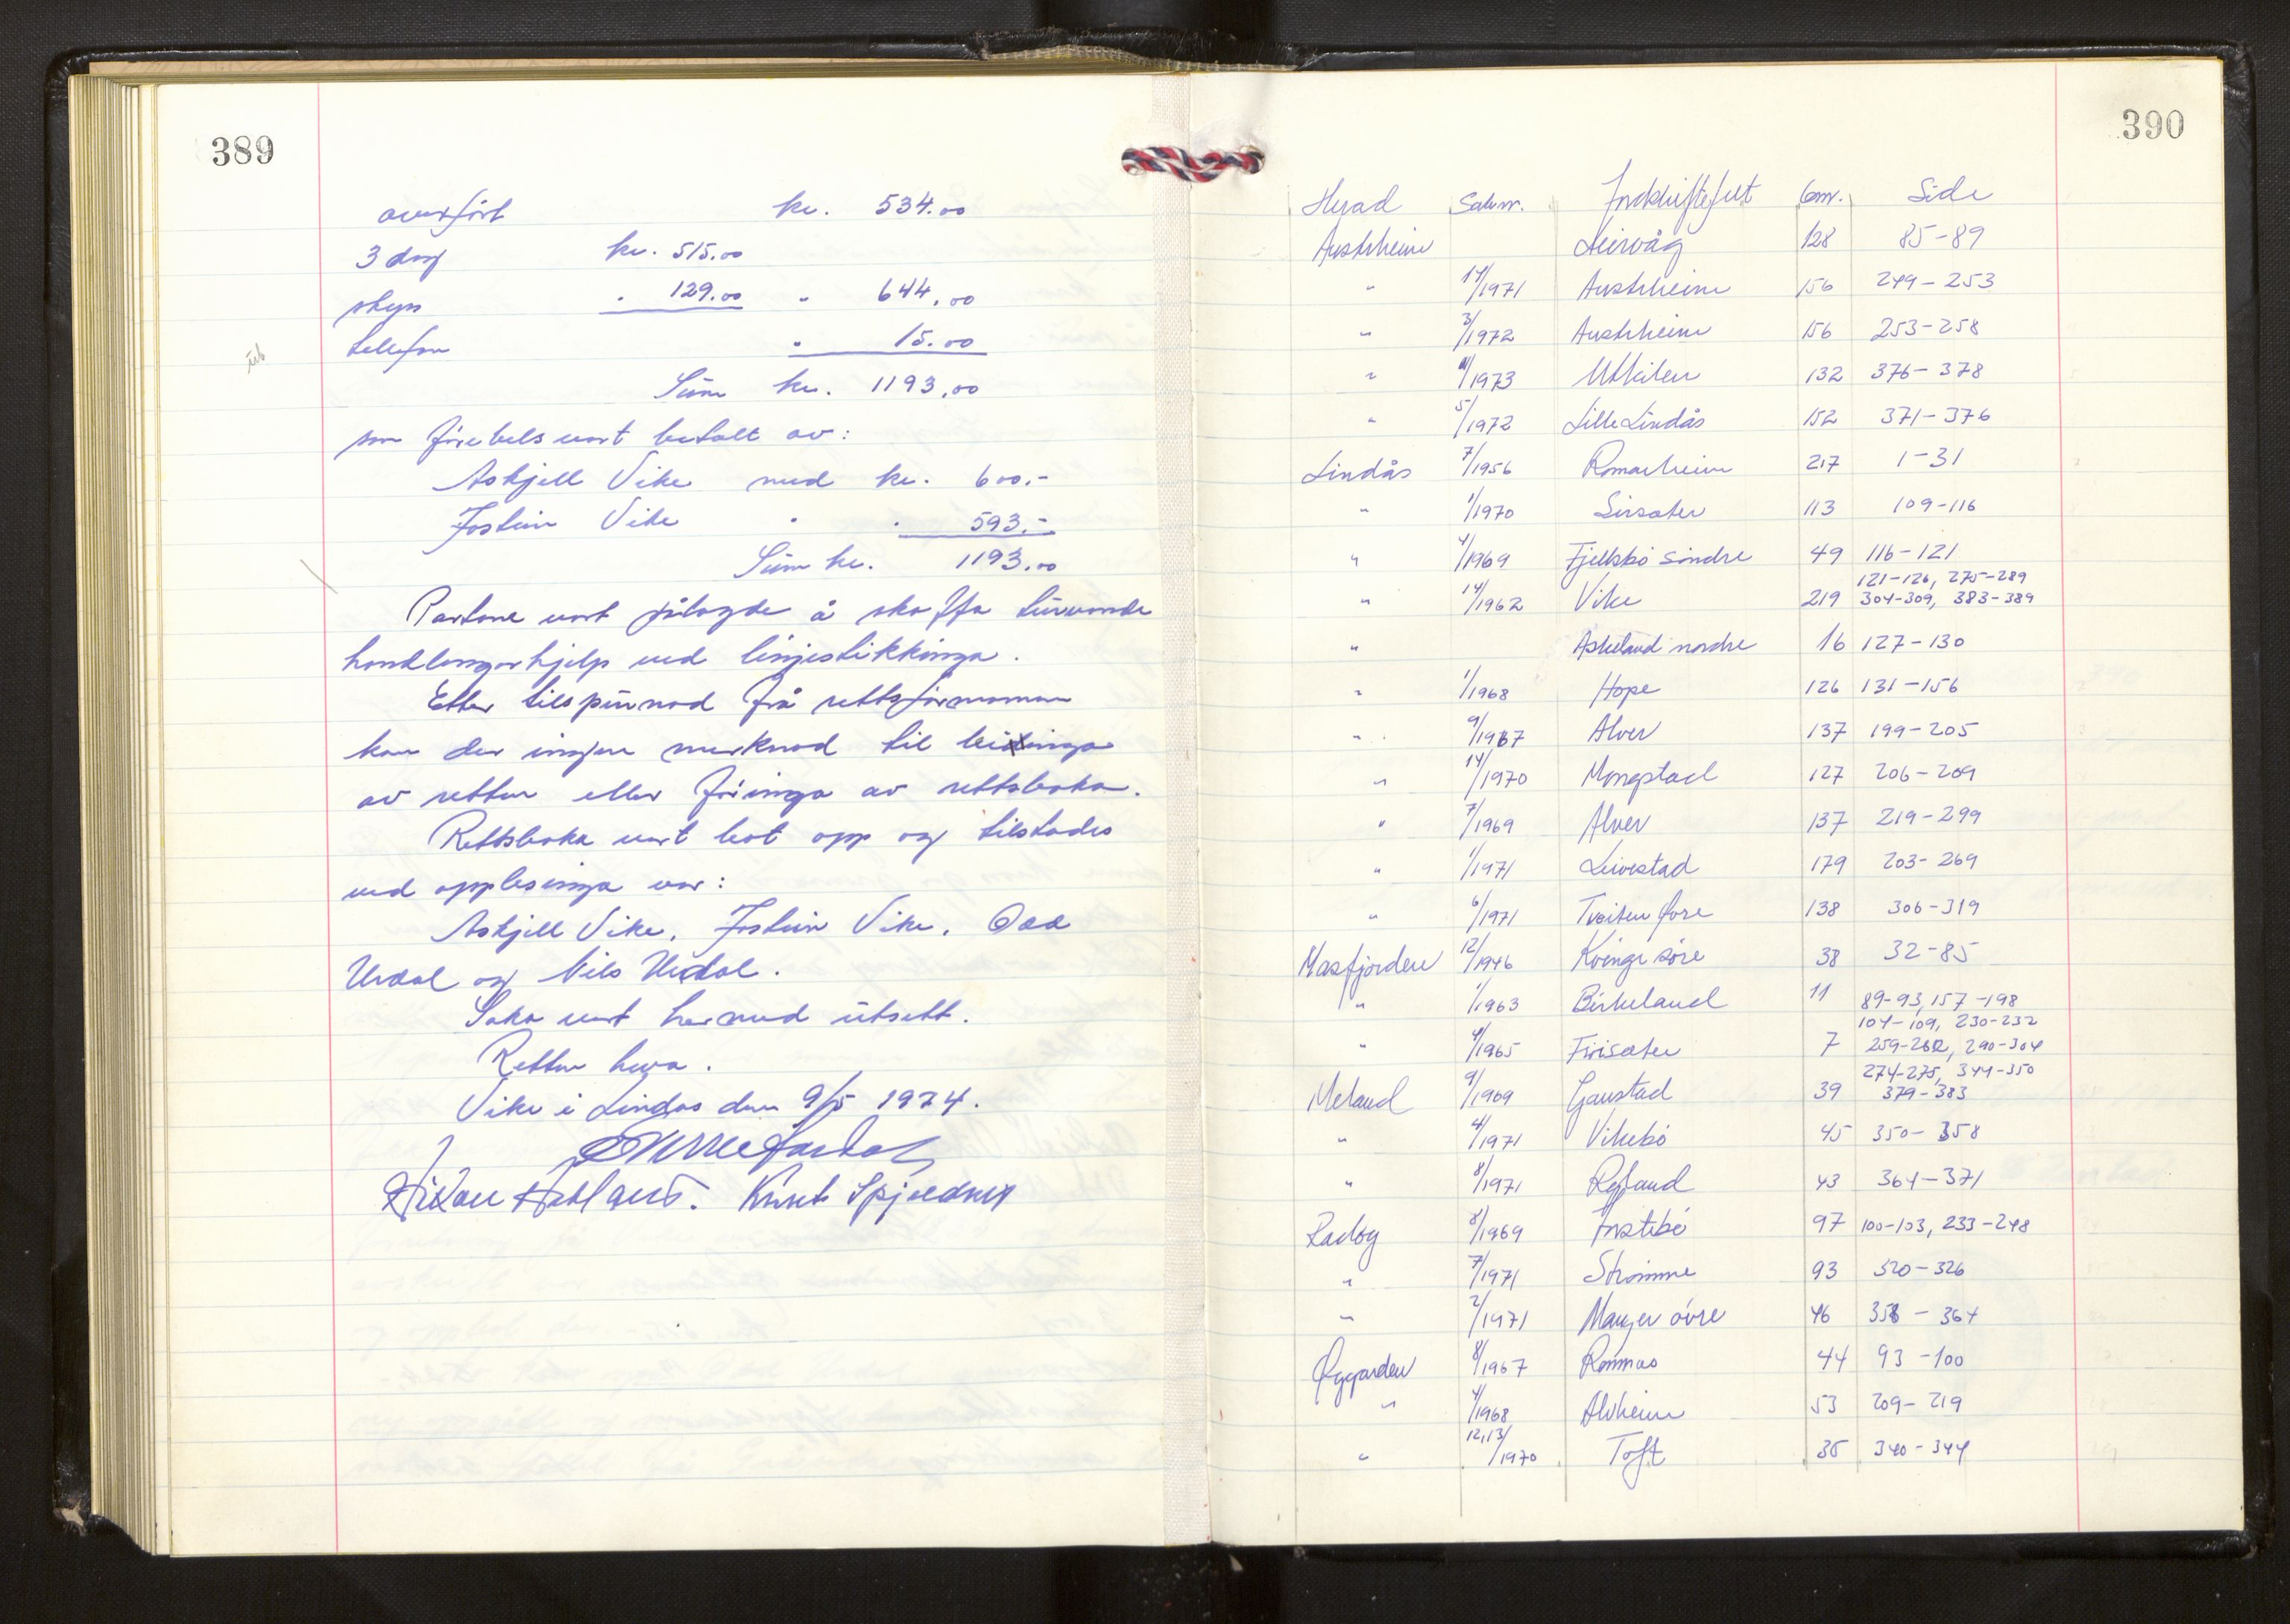 389
overført kr. 534.00
3 dag kr. 515.00
skyss " 129.00 " 644.00
telefon " 15.00
Sum kr. 1193.00
som førebels vart betalt av:
Askjell Vike med kr. 600.-
Jostein Vike " " 593.-
Sum kr. 1193.00
Partane vart pålagde å skaffa turvande
handlangarhjelp ved linjestikkinga.
Etter tilspurnad frå rettsformannen
kom der ingen merknad til leiinga
av retten eller føringa av rettsboka.
Rettsboka vart lest opp og tilstades
ved opplesinga var:
Askjell Vike, Jostein Vike, Odd
Urdal og Nils Urdal.
Saka vart hermed utsett.
Retten heva.
Vike i Lindås den 9/5 1974.
Knut Spjeldnes
390
Herad Saknr. Jordskiftefelt Gnr. Side
Austrheim Leirvåg 128 85-89
" 14/1971 Austrheim 156 249-253
" 3/1972 Austrheim 156 253-258
" /1973 Utkilen 132 376-378
" 5/1972 Lille Lindås 152 371-376
Lindås 7/1956 Romarheim 217 1-31
" 1/1970 Sirsæter 113 109-116
" 4/1969 Fjellsbø søndre 49 116-121
" 14/1962 Vike 219 121-126, 275-289
304-309, 383-389
" Askeland nordre 16 127-130
" 1/1968 Hope 126 131-156
" 9/1967 Alver 137 199-205
" 14/1970 Mongstad 127 206-209
" 7/1969 Alver 137 219-299
" 1/1971 Leivestad 179 203-269
" 6/1971 Tveiten øvre 138 306-319
Masfjorden 12/1946 Kvinge søre 38 32-85
" 1/1963 Birkeland 11 89-93, 157-198
" 4/1965 Firisæter 7 104-109, 230-232
259-262, 290-304
Meland 9/1969 Gaustad 39 274-275, 344-350
379-383
" 4/1971 Vikebø 45 350-358
" 8/1971 Ryland 43 364-371
Radøy 8/1969 Instebø 97 100-103, 233-248
" 7/1971 Strømme 93 320-326
" 2/1971 Manger øvre 46 358-364
Øygarden 8/1967 Rømmas 44 93-100
" 4/1968 Alvheim 53 209-219
" 12,13/1970 Toft 35 340-344